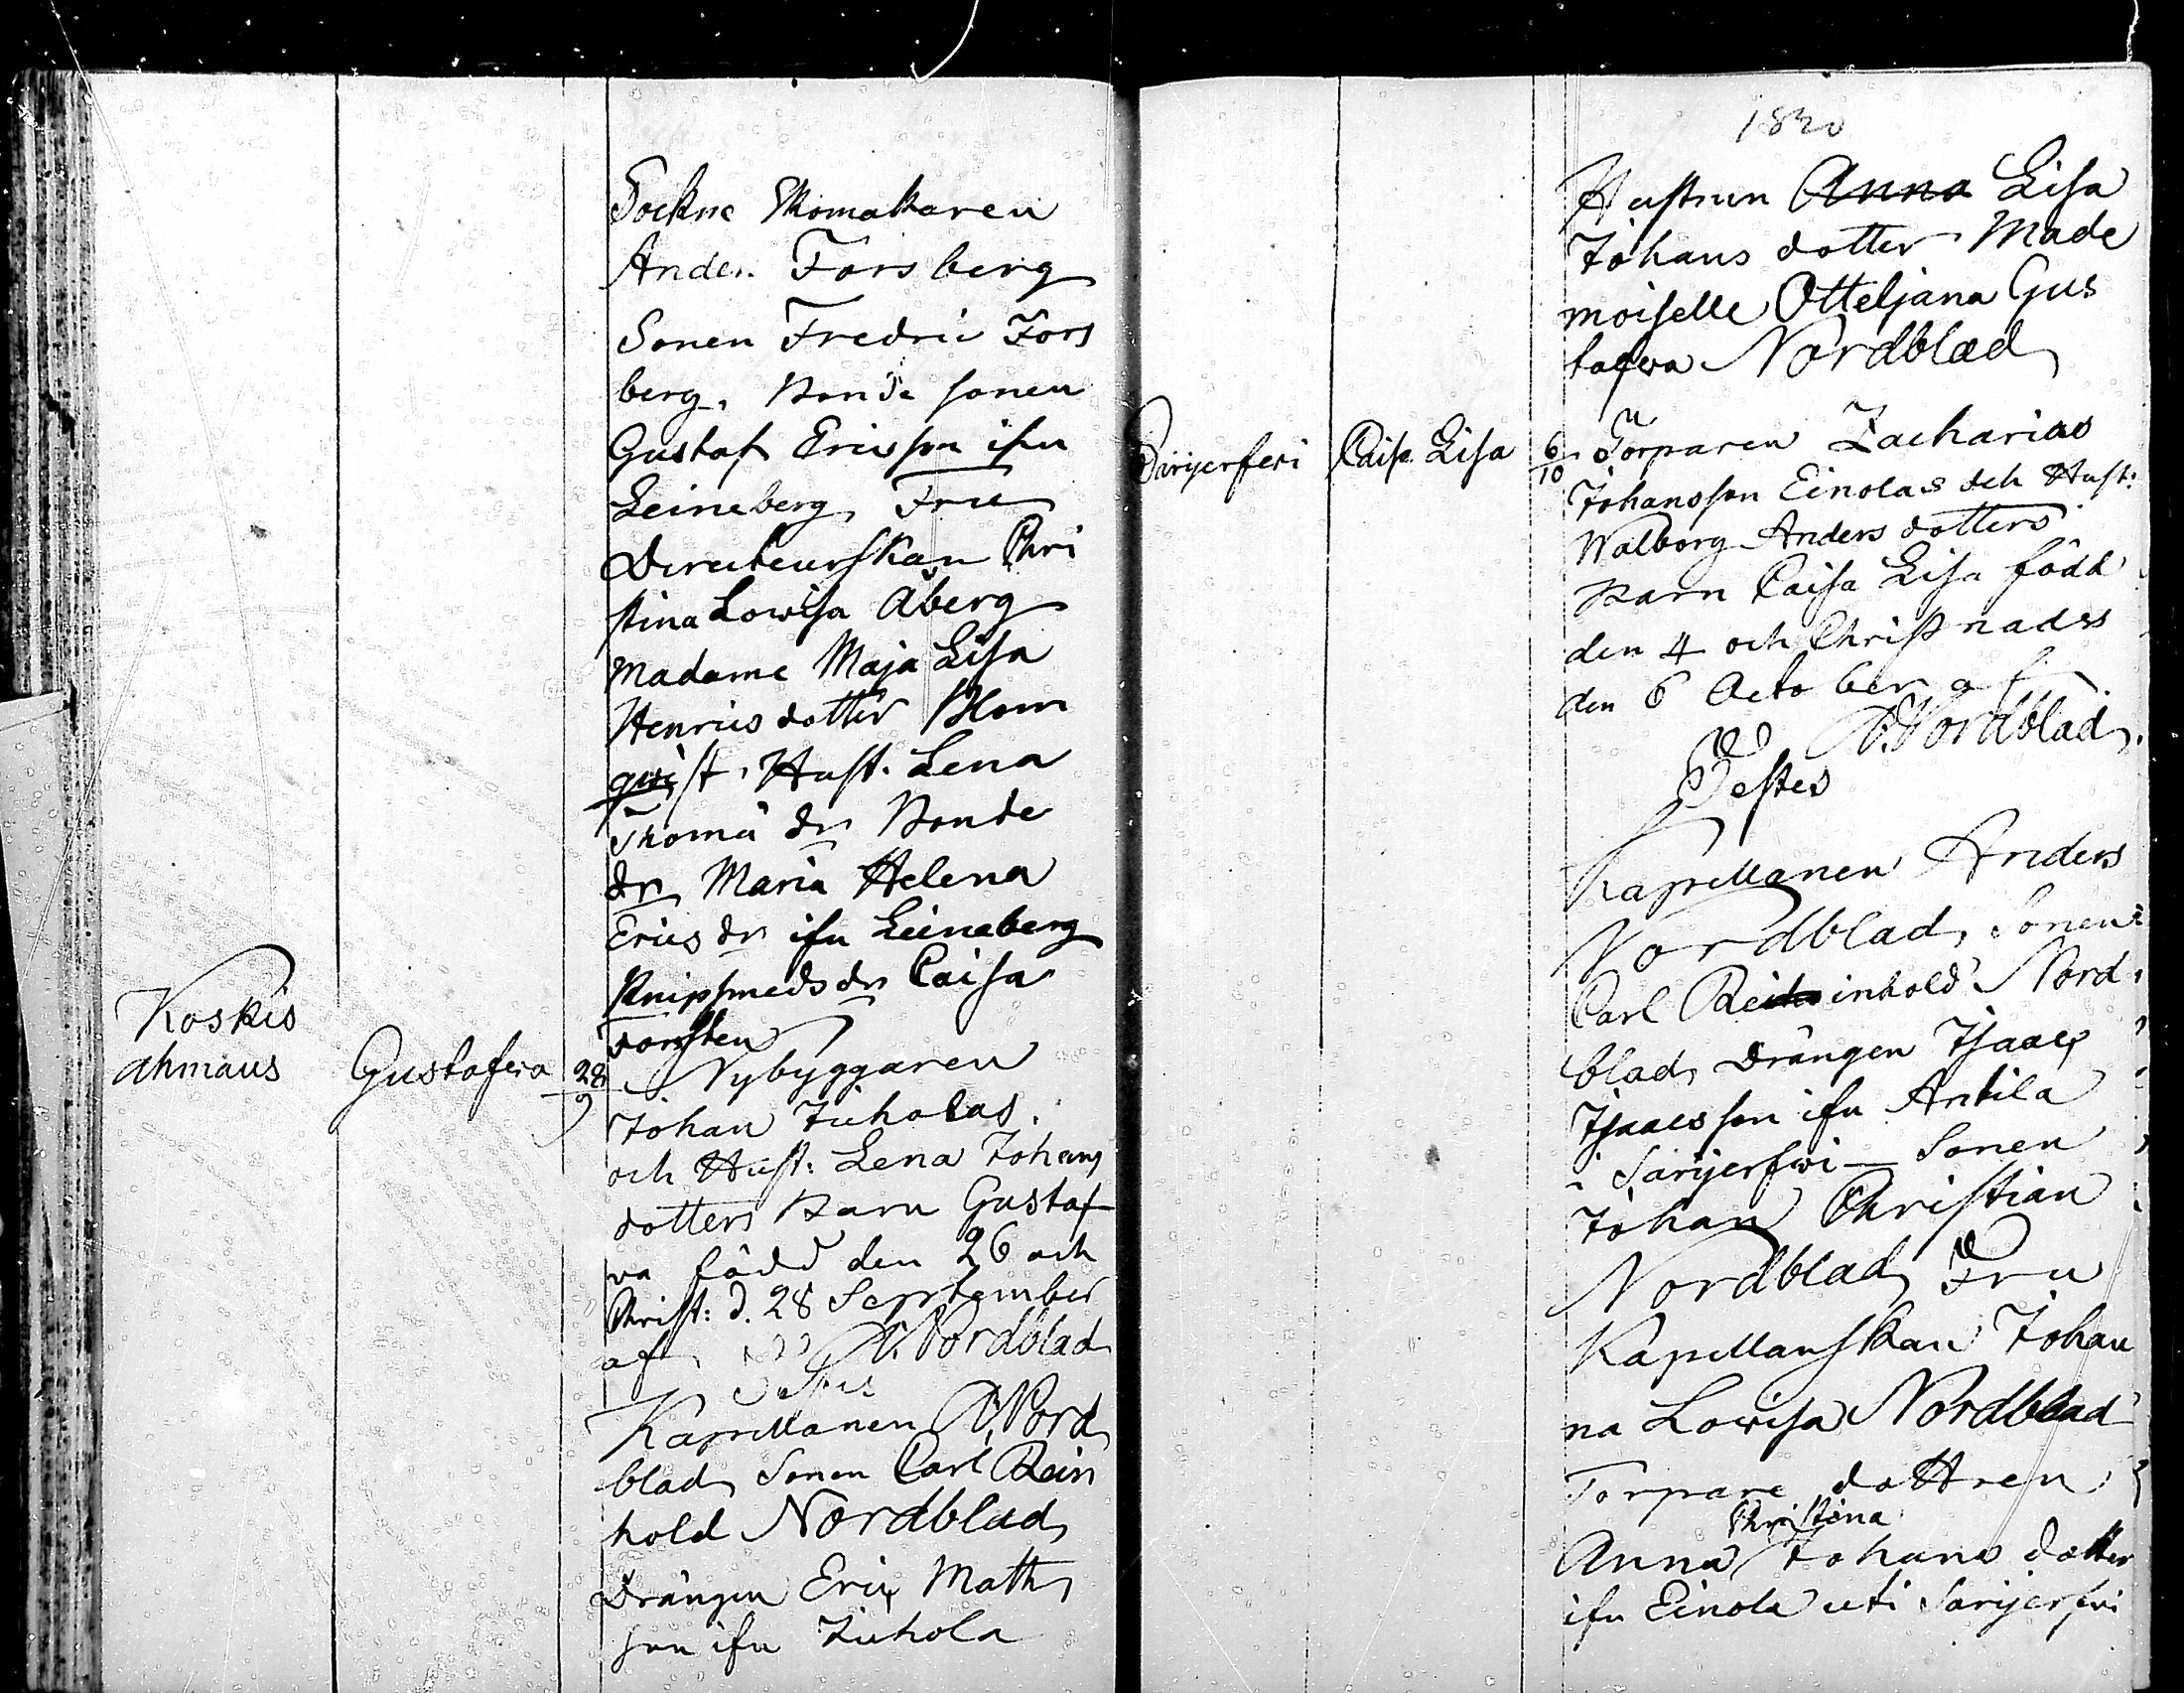 Sockne Skomakaren
Ander. Forsberg
Sonen Fredric Fors
berg, Bonde sonen
Gustaf Ericsson ifrn
Leineberg, Fru
Directeurskan Chri
stina Lowisa Åberg
Madame Maja Lisa
Henricsdotter Blom
qwist, Hust. Lena
Thomä dr Bonde
dr Maria Helena
Erics dr ifrn Leineberg
Knipsmeds dr Caisa
Torsten
Koskis
ahmaus
Gustafwa
28
9
Nybyggaren
Johan Juholas
och Hust: Lena Johans
dotters Barn Gustaf
va född den 26 och
Christ: d. 28 September
af A. Nordblad
Testes
Kapellanen A. Nord
blad, Sonen Carl Rein
hold Nordblad,
Drängen Eric Matts
son ifrn Juhola
1830
Hustrun Anna Lisa
Johans dotter Made
moiselle Otteljana Gus
tafwa Nordblad
Särijerfwi
Caisa Lisa
6
10
Torparen Zacharias
Johansson Einolas och Hust:
Walborg Anders dotters
Barn Caisa Lisa född
den 4 och Christnades
den 6 October af
A. Nordblad.
Testes
Kapellanen Anders
Nordblad, Sonen
Carl Reinhold Nord
blad, Drängen Isaac
Isaacsson ifrn Antila
i Särijerfwi – Sonen
Johan Christian
Nordblad, Fru
Kapellanskan Johan
na Lowisa Nordblad
Torpare dottren
Christina
Anna Johans dotter
ifrn Einola uti Särijerfwi